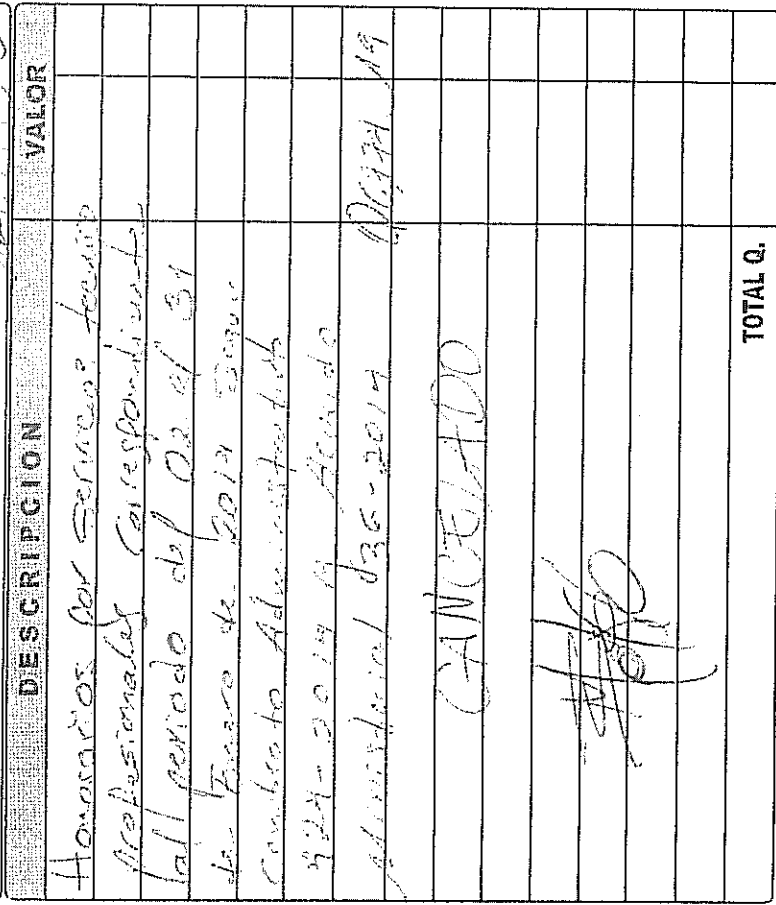 DESCRIPCION VALOR
Honorarios por servicios tecnico
Profesionales Correspondiente
al periodo del 02 al 31
de Enero de 2014 Segun
Contrato Administrativo
2014 Acuerdo
Ministerial 036-2014
CANCELADO
TOTAL Q.